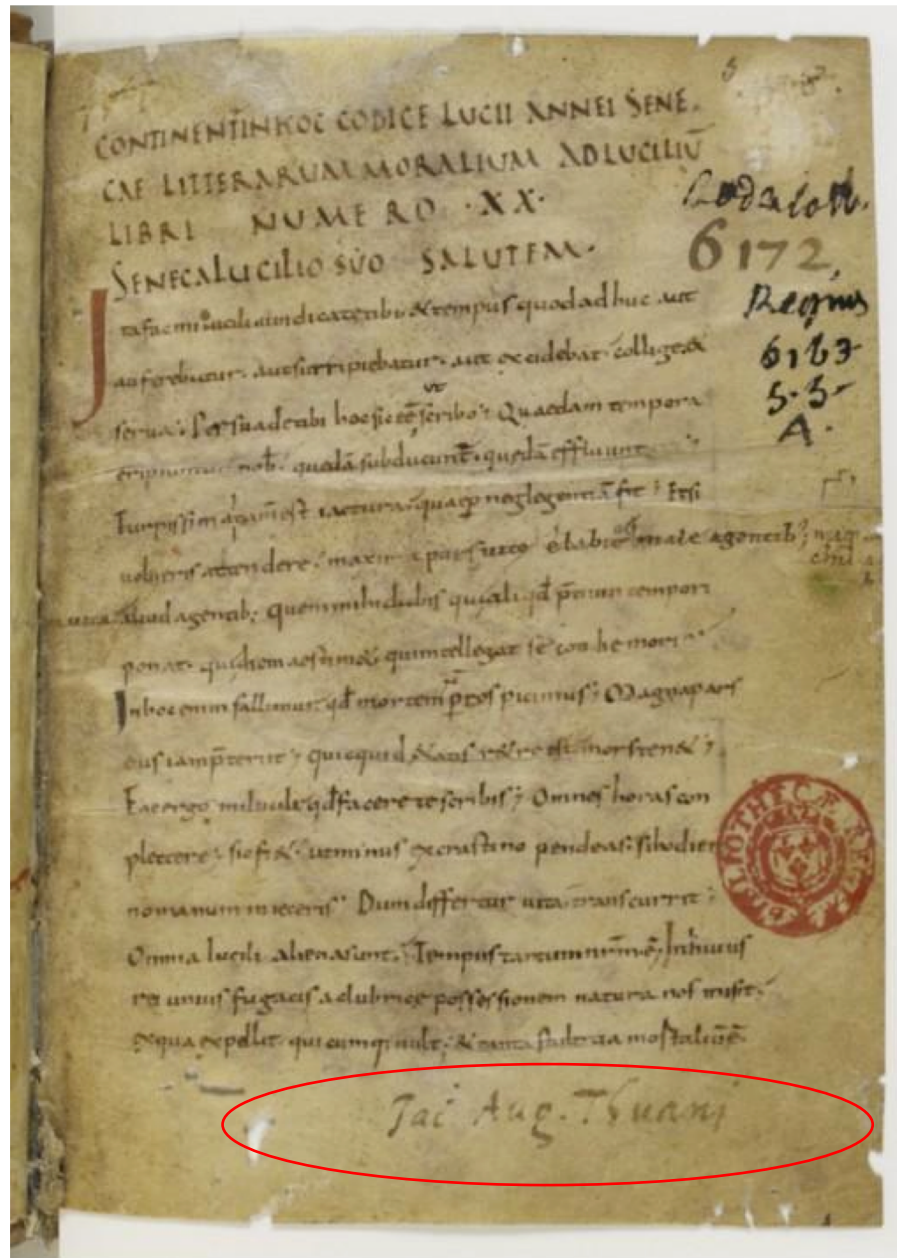 CONTINENTINHOC CODICE LUCII ANNEI SENE.
CAE LITTERARUM MORALIUM ADLUCILIŪ
LIBRI NUMERO ·XX·
SENECALUCILIO SUO SALUTEM·
6172,
Regius
6163
5·5·
A.
Ita fac mi lucili uindicatetibi & tempus quodadhuc aut
auferebatur· autsurripiebatur· aut excidebat· collige· &
serua· Persuadetibi hocsic eē ut scribo· Quaedam tempora
eripiuntur nob· quedā subducunt̄· quedā effluunt
Turpissima tam̄ est iactura· quae p neglegentiā fit· Etsi
uolueris attendere· maxima pars uitae elabit male agentib;
aliud agentib; Quemmihidabis quialiqd p̄tium tempori
ponat· qui diem aestimet· quiintellegat se cottidie mori
Inhoc enim fallimur· qd mortem pspicimus· Magnapars
eius iamp̄terit· quicquid &atis r&ro est· morsten&·
Facergo milucili· qdfacere tescribis· Omnes horas con
plectere· sicfi&· utminus excrastino pendeas· sihodier
nomanum inieceris· Dum differtur uita transcurrit·
Omnia lucili· alienasunt· Tempus tantum nrm ē· Inhuius
rei unius fugacis aclubrice possessionem natura nos misit·
exqua expellit· quicumq; uult· & tanta stultitia mortaliū ē·
Jac Aug. Thuani
BIBLIOTHECÆ REGIÆ